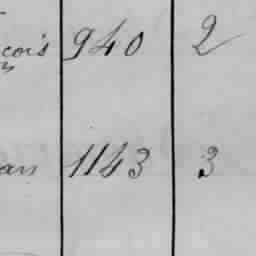 çois 940 2
an 1143 3